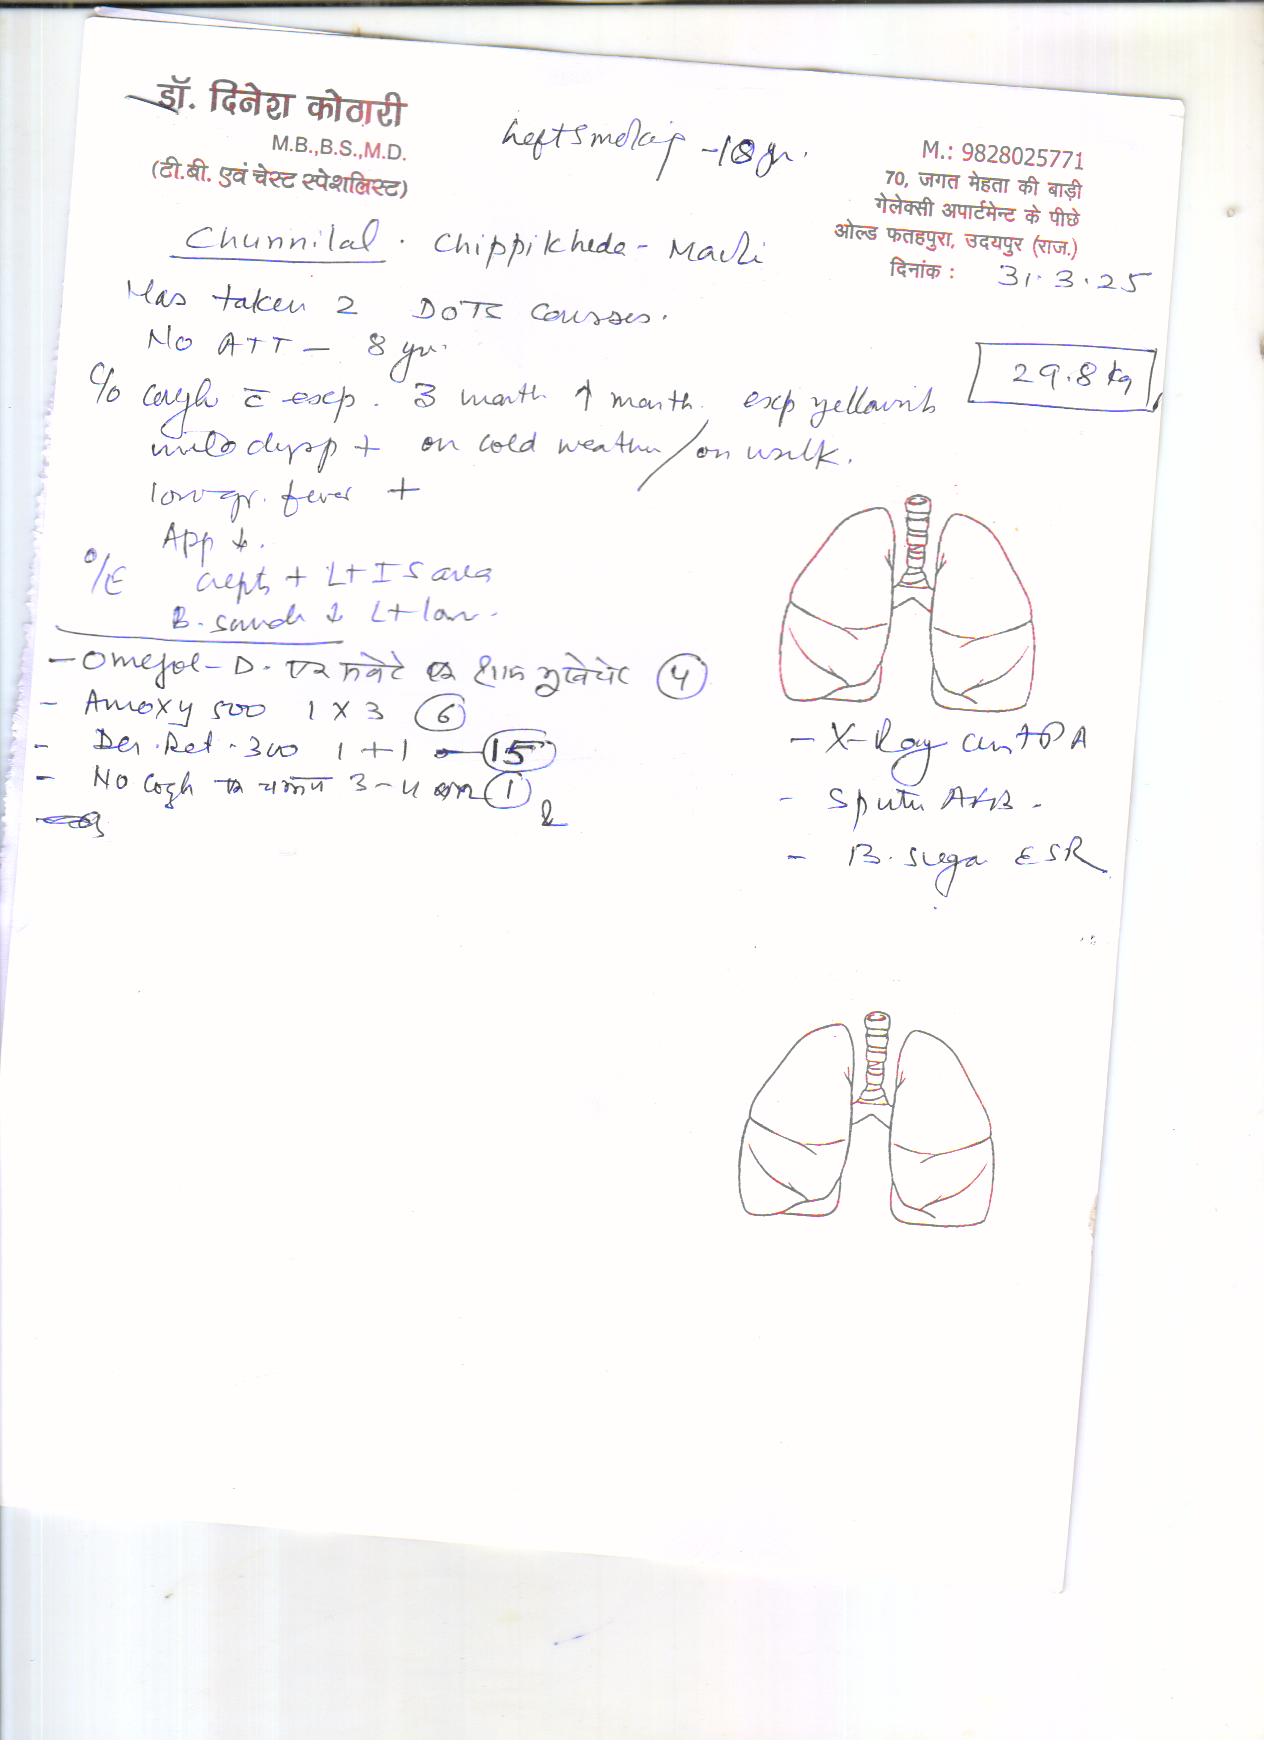 डॉ. दिनेश कोठारी
M.B.,B.S.,M.D.
(टी.बी. एवं चेस्ट स्पेशलिस्ट)
Left Smoking - 18 yr.
M.: 9828025771
70, जगत मेहता की बाड़ी
गेलेक्सी अपार्टमेन्ट के पीछे
ओल्ड फतहपुरा, उदयपुर (राज.)
दिनांक : 31.3.25
Chunnilal . Chippikheda -
Has taken 2 DOTS Courses.
No ATT - 8 yr.
29.8 kg
C/o Cough c̄ exp. 3 month ↑ month. exp yellowish
mild dysp + on cold weather / on walk.
low gr. fever +
App ↓.
O/E crepts + Lt I S area
B. sounds ↓ Lt low.
- Omejol - D. एक एक शाम भूखे पेट (4)
- Amoxy 500 1 X 3 (6)
- Der. Ret. 300 1 + 1 - (15)
- No Cough एक चम्मच 3-4 बार (1)
- X-Ray chest PA
- Sputum AFB -
- B. Sugar ESR